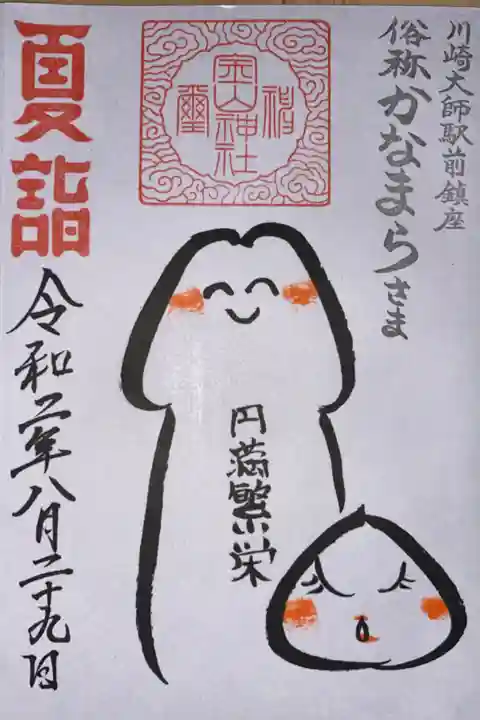 川崎大師駅前鎮座
俗称かなまらさま
金山神社
夏詣
円満繁栄
令和二年八月二十九日